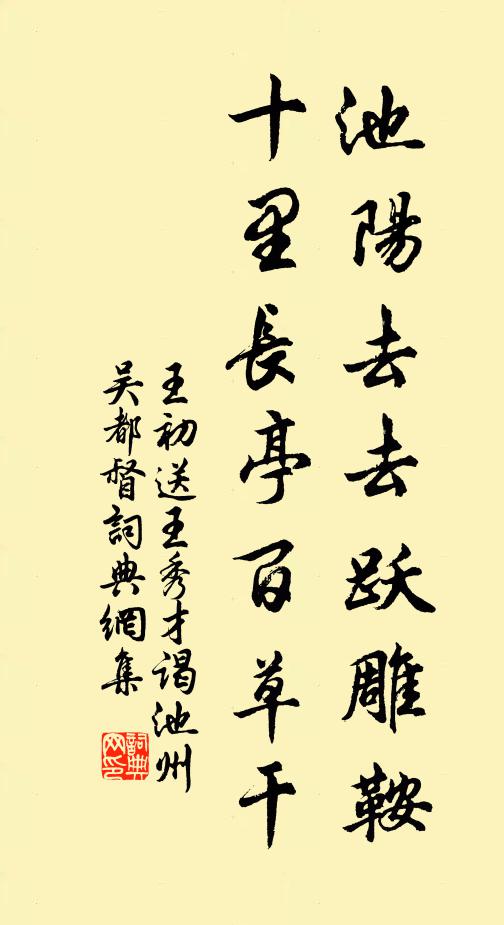 池陽去去跃雕鞍
十里長亭百草干
王初送王秀才谒池州
吴都督詞典網集
詞典
网印